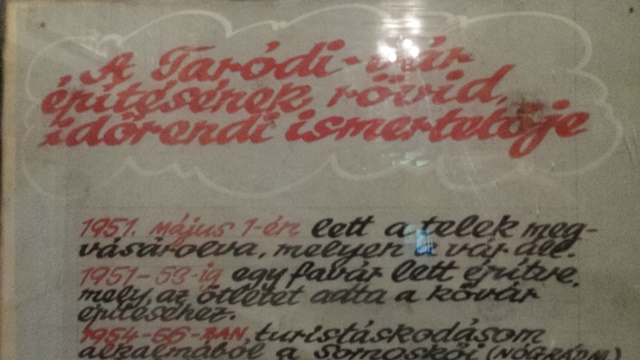 A Taródi-vár
építésének rövid,
időrendi ismertetője
1951. május 1-én lett a telek meg-
vásárolva, melyen a vár áll.
1951-53-ig egy favár lett építve,
mely az ötletet adta a kővár
építéséhez.
1954-56-BAN, turistáskodásom
alkalmából a Somoskői (NÓGRÁD M.)